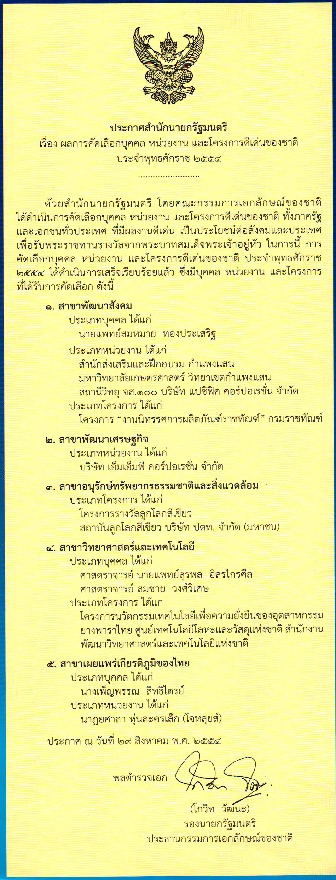 ประกาศสำนักนายกรัฐมนตรี
เรื่อง ผลการคัดเลือกบุคคล หน่วยงาน และโครงการดีเด่นของชาติ
ประจำพุทธศักราช ๒๕๕๔
ด้วยสำนักนายกรัฐมนตรี โดยคณะกรรมการเอกลักษณ์ของชาติ
ได้ดำเนินการคัดเลือกบุคคล หน่วยงาน และโครงการดีเด่นของชาติ ทั้งภาครัฐ
และเอกชนทั่วประเทศ ที่มีผลงานดีเด่น เป็นประโยชน์ต่อสังคมและประเทศ
เพื่อรับพระราชทานรางวัลจากพระบาทสมเด็จพระเจ้าอยู่หัว ในการนี้ การ
คัดเลือกบุคคล หน่วยงาน และโครงการดีเด่นของชาติ ประจำพุทธศักราช
๒๕๕๔ ได้ดำเนินการเสร็จเรียบร้อยแล้ว ซึ่งมีบุคคล หน่วยงาน และโครงการ
ที่ได้รับการคัดเลือก ดังนี้
๑. สาขาพัฒนาสังคม
ประเภทบุคคล ได้แก่
นายแพทย์สมหมาย ทองประเสริฐ
ประเภทหน่วยงาน ได้แก่
สำนักส่งเสริมและฝึกอบรม กำแพงแสน
มหาวิทยาลัยเกษตรศาสตร์ วิทยาเขตกำแพงแสน
สถานีวิทยุ จส.๑๐๐ บริษัท แปซิฟิค คอร์ปอเรชั่น จำกัด
ประเภทโครงการ ได้แก่
โครงการ "งานนิทรรศการผลิตภัณฑ์ราชทัณฑ์" กรมราชทัณฑ์
๒. สาขาพัฒนาเศรษฐกิจ
ประเภทหน่วยงาน ได้แก่
บริษัท เอ็มเอ็มพี คอร์ปอเรชั่น จำกัด
๓. สาขาอนุรักษ์ทรัพยากรธรรมชาติและสิ่งแวดล้อม
ประเภทโครงการ ได้แก่
โครงการรางวัลลูกโลกสีเขียว
สถาบันลูกโลกสีเขียว บริษัท ปตท. จำกัด (มหาชน)
๔. สาขาวิทยาศาสตร์และเทคโนโลยี
ประเภทบุคคล ได้แก่
ศาสตราจารย์ นายแพทย์สุรพล อิสรไกรศีล
ศาสตราจารย์ สมชาย วงศ์วิเศษ
ประเภทโครงการ ได้แก่
โครงการนวัตกรรมเทคโนโลยีเพื่อความยั่งยืนของอุตสาหกรรม
ยางพาราไทย ศูนย์เทคโนโลยีโลหะและวัสดุแห่งชาติ สำนักงาน
พัฒนาวิทยาศาสตร์และเทคโนโลยีแห่งชาติ
๕. สาขาเผยแพร่เกียรติภูมิของไทย
ประเภทบุคคล ได้แก่
นางเพ็ญพรรณ สิทธิไตรย์
ประเภทหน่วยงาน ได้แก่
นาฏยศาลา หุ่นละครเล็ก (โจหลุยส์)
ประกาศ ณ วันที่ ๒๙ สิงหาคม พ.ศ. ๒๕๕๔
พลตำรวจเอก
(โกวิท วัฒนะ)
รองนายกรัฐมนตรี
ประธานกรรมการเอกลักษณ์ของชาติ